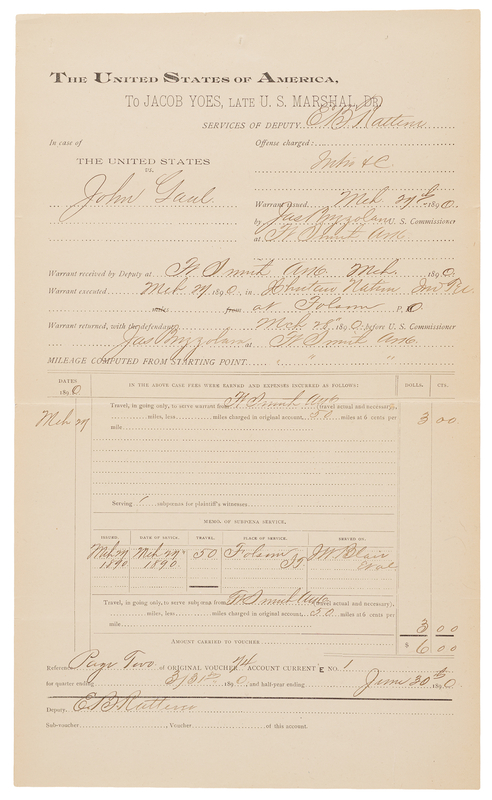 THE UNITED STATES OF AMERICA,
TO JACOB YOES, LATE U. S. MARSHAL, DR.
SERVICES OF DEPUTY E. B. Ratteree
In case of
Offense charged:
THE UNITED STATES
vs.
John Gaul
Intro &c.
Warrant issued Mch 27th 1890.
by Jas Brizzolara U. S. Commissioner
at Ft Smith Ark.
Warrant received by Deputy at Ft Smith Ark. Mch. 1890.
Warrant executed Mch 27 1890, in Choctaw Nation Ind Ter.
miles from at Folsom P. O.
Warrant returned, with the defendant, Mch 28" 1890 before U. S. Commissioner
Jas Brizzolara at Ft Smith Ark.
MILEAGE COMPUTED FROM STARTING POINT " " "
DATES
1890
IN THE ABOVE CASE FEES WERE EARNED AND EXPENSES INCURRED AS FOLLOWS:
DOLLS. CTS.
Mch 27
Travel, in going only, to serve warrant from Ft Smith Ark (travel actual and necessary),
miles, less miles charged in original account, 50 miles at 6 cents per
mile
3 00
Serving 1 subpœnas for plaintiff's witnesses
MEMO. OF SUBPŒNA SERVICE.
ISSUED. DATE OF SERVICE. TRAVEL. PLACE OF SERVICE. SERVED ON.
Mch 27 1890 Mch 27" 1890. 50 Folsom IT. J W Blair
Travel, in going only, to serve subpœna from Ft Smith Ark (travel actual and necessary),
miles, less miles charged in original account, 50 miles at 6 cents per
mile
3 00
AMOUNT CARRIED TO VOUCHER
$ 6 00
Reference Page Two of ORIGINAL VOUCHER 74 ACCOUNT CURRENT E NO. 1
for quarter ending 3/31st 1890, and half-year ending June 30th 1890
Deputy. E. B. Ratteree
Sub-voucher , Voucher of this account.